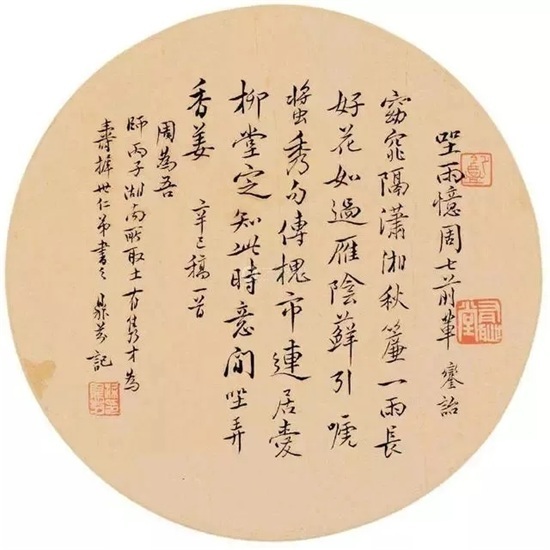 坐雨憶周七前輩 鑾詒
窈窕隔瀟湘秋簾一雨長
好花如過雁陰蘚引嗁
螿秀句傳槐市連居愛
柳堂定知此時意閒坐弄
香姜 辛巳稿一首
周為吾
師丙子湖南所取士有雋才為
世仁弟書之 鼎芬記